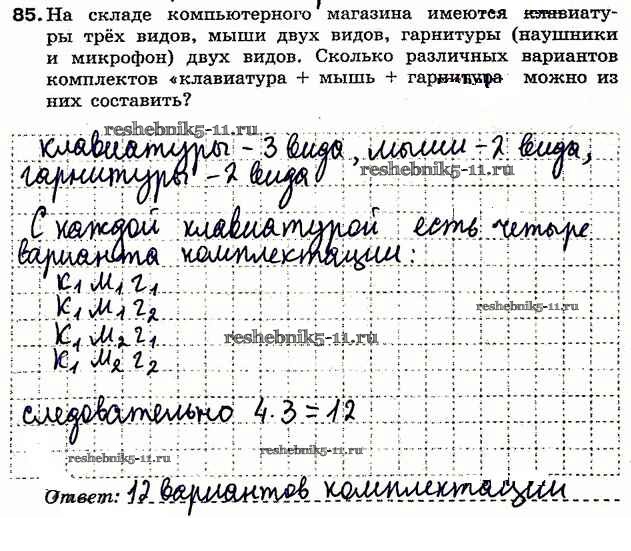 85. На складе компьютерного магазина имеются клавиату-
ры трёх видов, мыши двух видов, гарнитуры (наушники
и микрофон) двух видов. Сколько различных вариантов
комплектов «клавиатура + мышь + гарнитура можно из
них составить?
reshebnik5-11.ru
клавиатуры - 3 вида, мыши - 2 вида,
reshebnik5-11.ru
гарнитуры - 2 вида
С каждой клавиатурой есть четыре
варианта комплектации:
К₁ М₁ г₁
К₁ М₁ г₂
reshebnik5-11.ru
К₁ М₂ г₁
reshebnik5-11.ru
К₁ М₂ г₂
следовательно 4·3=12
reshebnik5-11.ru
reshebnik5-11.ru
Ответ: 12 вариантов комплектации